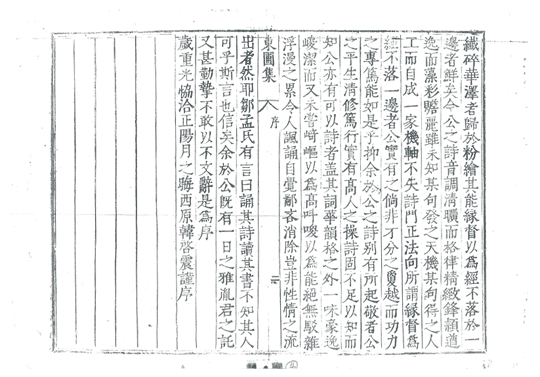 纖碎華澤者歸於粉繪其能緣督以爲經不落於一
邊者鮮矣今公之詩音調清曠而格律精緻鋒穎遒
逸而藻彩贍麗雖未知某句發之天機某句得之人
工而自成一家機軸不失詩門正法向所謂緣督爲
經不落一邊者公實有之倘非才分之夐越而功力
之專篤能如是乎抑余於公之詩別有所起敬者公
之平生清修篤行實有高人之操詩固不足以知而
知公亦有可以詩者盖其詞華韻格之外一味豪逸
峻潔而又未嘗崎嶇以爲高呼唆以爲能絕無駁雜
浮漫之累令人諷誦自覺鄙吝消除豈非性情之流
東圃集 序 三
出者然耶鄒孟氏有言曰誦其詩讀其書不知其人
可乎斯言也信矣余於公既有一日之雅胤君之託
又甚勤摯不敢以不文辭是爲序
歲重光協洽正陽月之晦西原韓啓震謹序